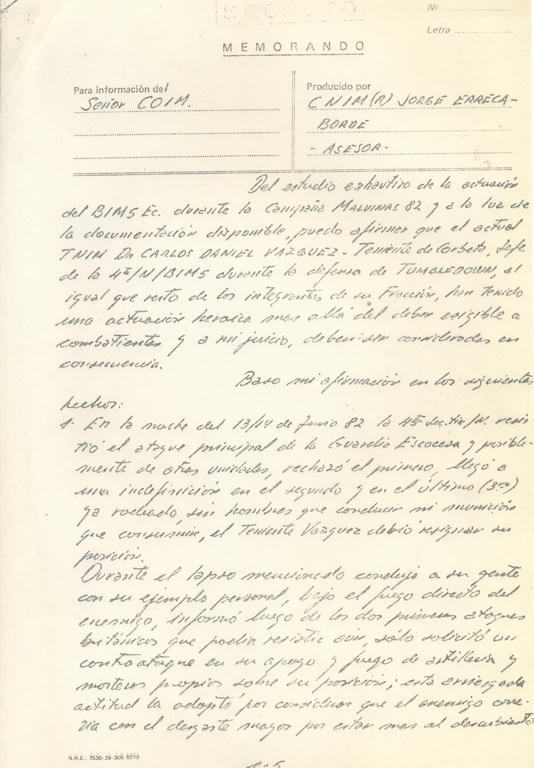 SECRETO
Nº
Letra
MEMORANDO
Para información del
Señor COIM.
Producido por
CNIM (R) JORGE ERRECA-
BORDE
- ASESOR -
Del estudio exhaustivo de la actuación
del BIM5 Ec. durante la Campaña MALVINAS 82 y a la luz de
la documentación disponible, puedo afirmar que el actual
TNIN Dn CARLOS DANIEL VAZQUEZ - Teniente de Corbeta, Jefe
de la 4ta/N/BIM5 durante la defensa de TUMBLEDOWN, al
igual que resto de los integrantes de su Fracción, han tenido
una actuación heroica mas allá del deber exigible a
combatientes y a mi juicio, deben ser considerados en
consecuencia.
Baso mi afirmación en los siguientes
hechos:
1. En la noche del 13/14 de Junio 82 la 4ta Sec. resis-
tió el ataque principal de la Guardia Escocesa y posible-
mente de otras unidades, rechazó el primero, llegó a
una indefinición en el segundo y en el último (3ro)
ya rodeado, sin hombres que conducir ni munición
que consumir, el Teniente Vazquez debió resignar su
posición.
Durante el lapso mencionado condujo a su gente
con su ejemplo personal, bajo el fuego directo del
enemigo, informó luego de los dos primeros ataques
británicos que podía resistir aún, sólo solicitó un
contraataque en su apoyo y fuego de artillería y
morteros propios sobre su posición; esta arriesgada
actitud la adoptó por considerar que el enemigo corre-
ría con el desgaste mayor por estar mas al descubierto
N.N.E.: 7530-29-306-5519